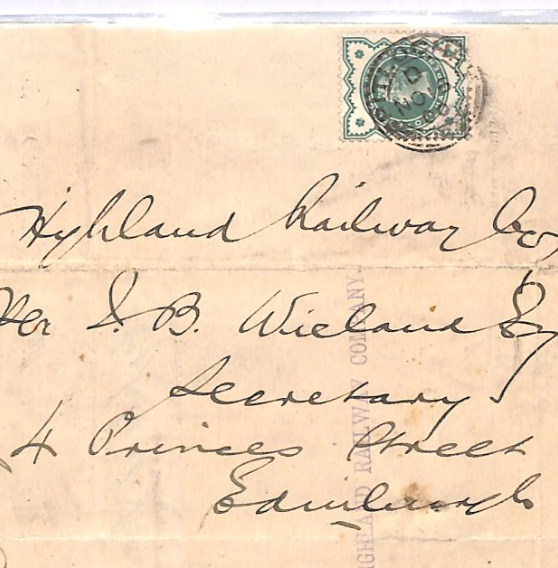 Highland Railway Coy
Per G. B. Wieland Esq
Secretary
4 Princes Street
Edinburgh
HIGHLAND RAILWAY COMPANY.